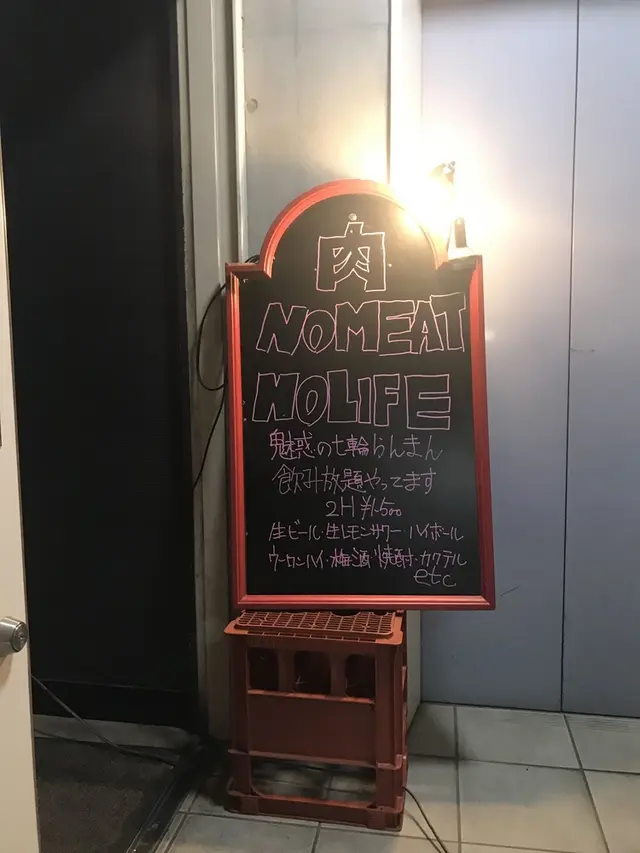 肉
NOMEAT
NOLIFE
魅惑の七輪らんまん
飲み放題やってます
2H ¥1,500
生ビール・生レモンサワー・ハイボール
ウーロンハイ・梅酒・焼酎・カクテル
etc